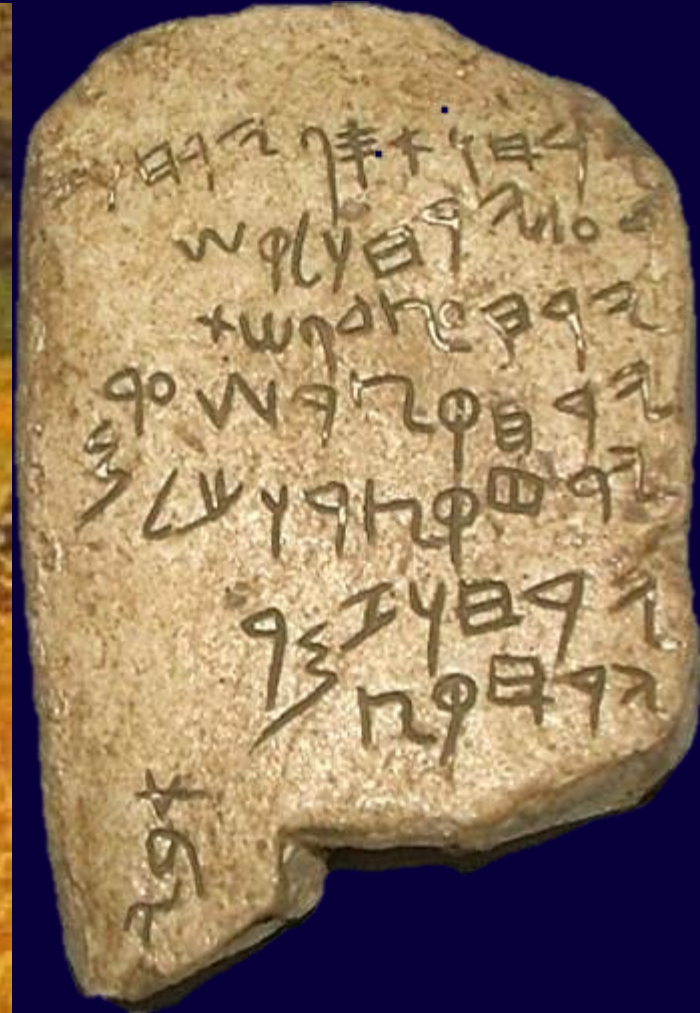 𐤉𐤓𐤇𐤅 𐤀𐤎𐤐 𐤉𐤓𐤇𐤅 𐤆
𐤓𐤏 𐤉𐤓𐤇𐤅 𐤋𐤒𐤔
𐤉𐤓𐤇 𐤏𐤑𐤃 𐤐𐤔𐤕
𐤉𐤓𐤇 𐤒𐤑𐤓 𐤔𐤏𐤓𐤌
𐤉𐤓𐤇 𐤒𐤑𐤓 𐤅𐤊𐤋
𐤉𐤓𐤇𐤅 𐤆𐤌𐤓
𐤉𐤓𐤇 𐤒𐤑
𐤀𐤁𐤉